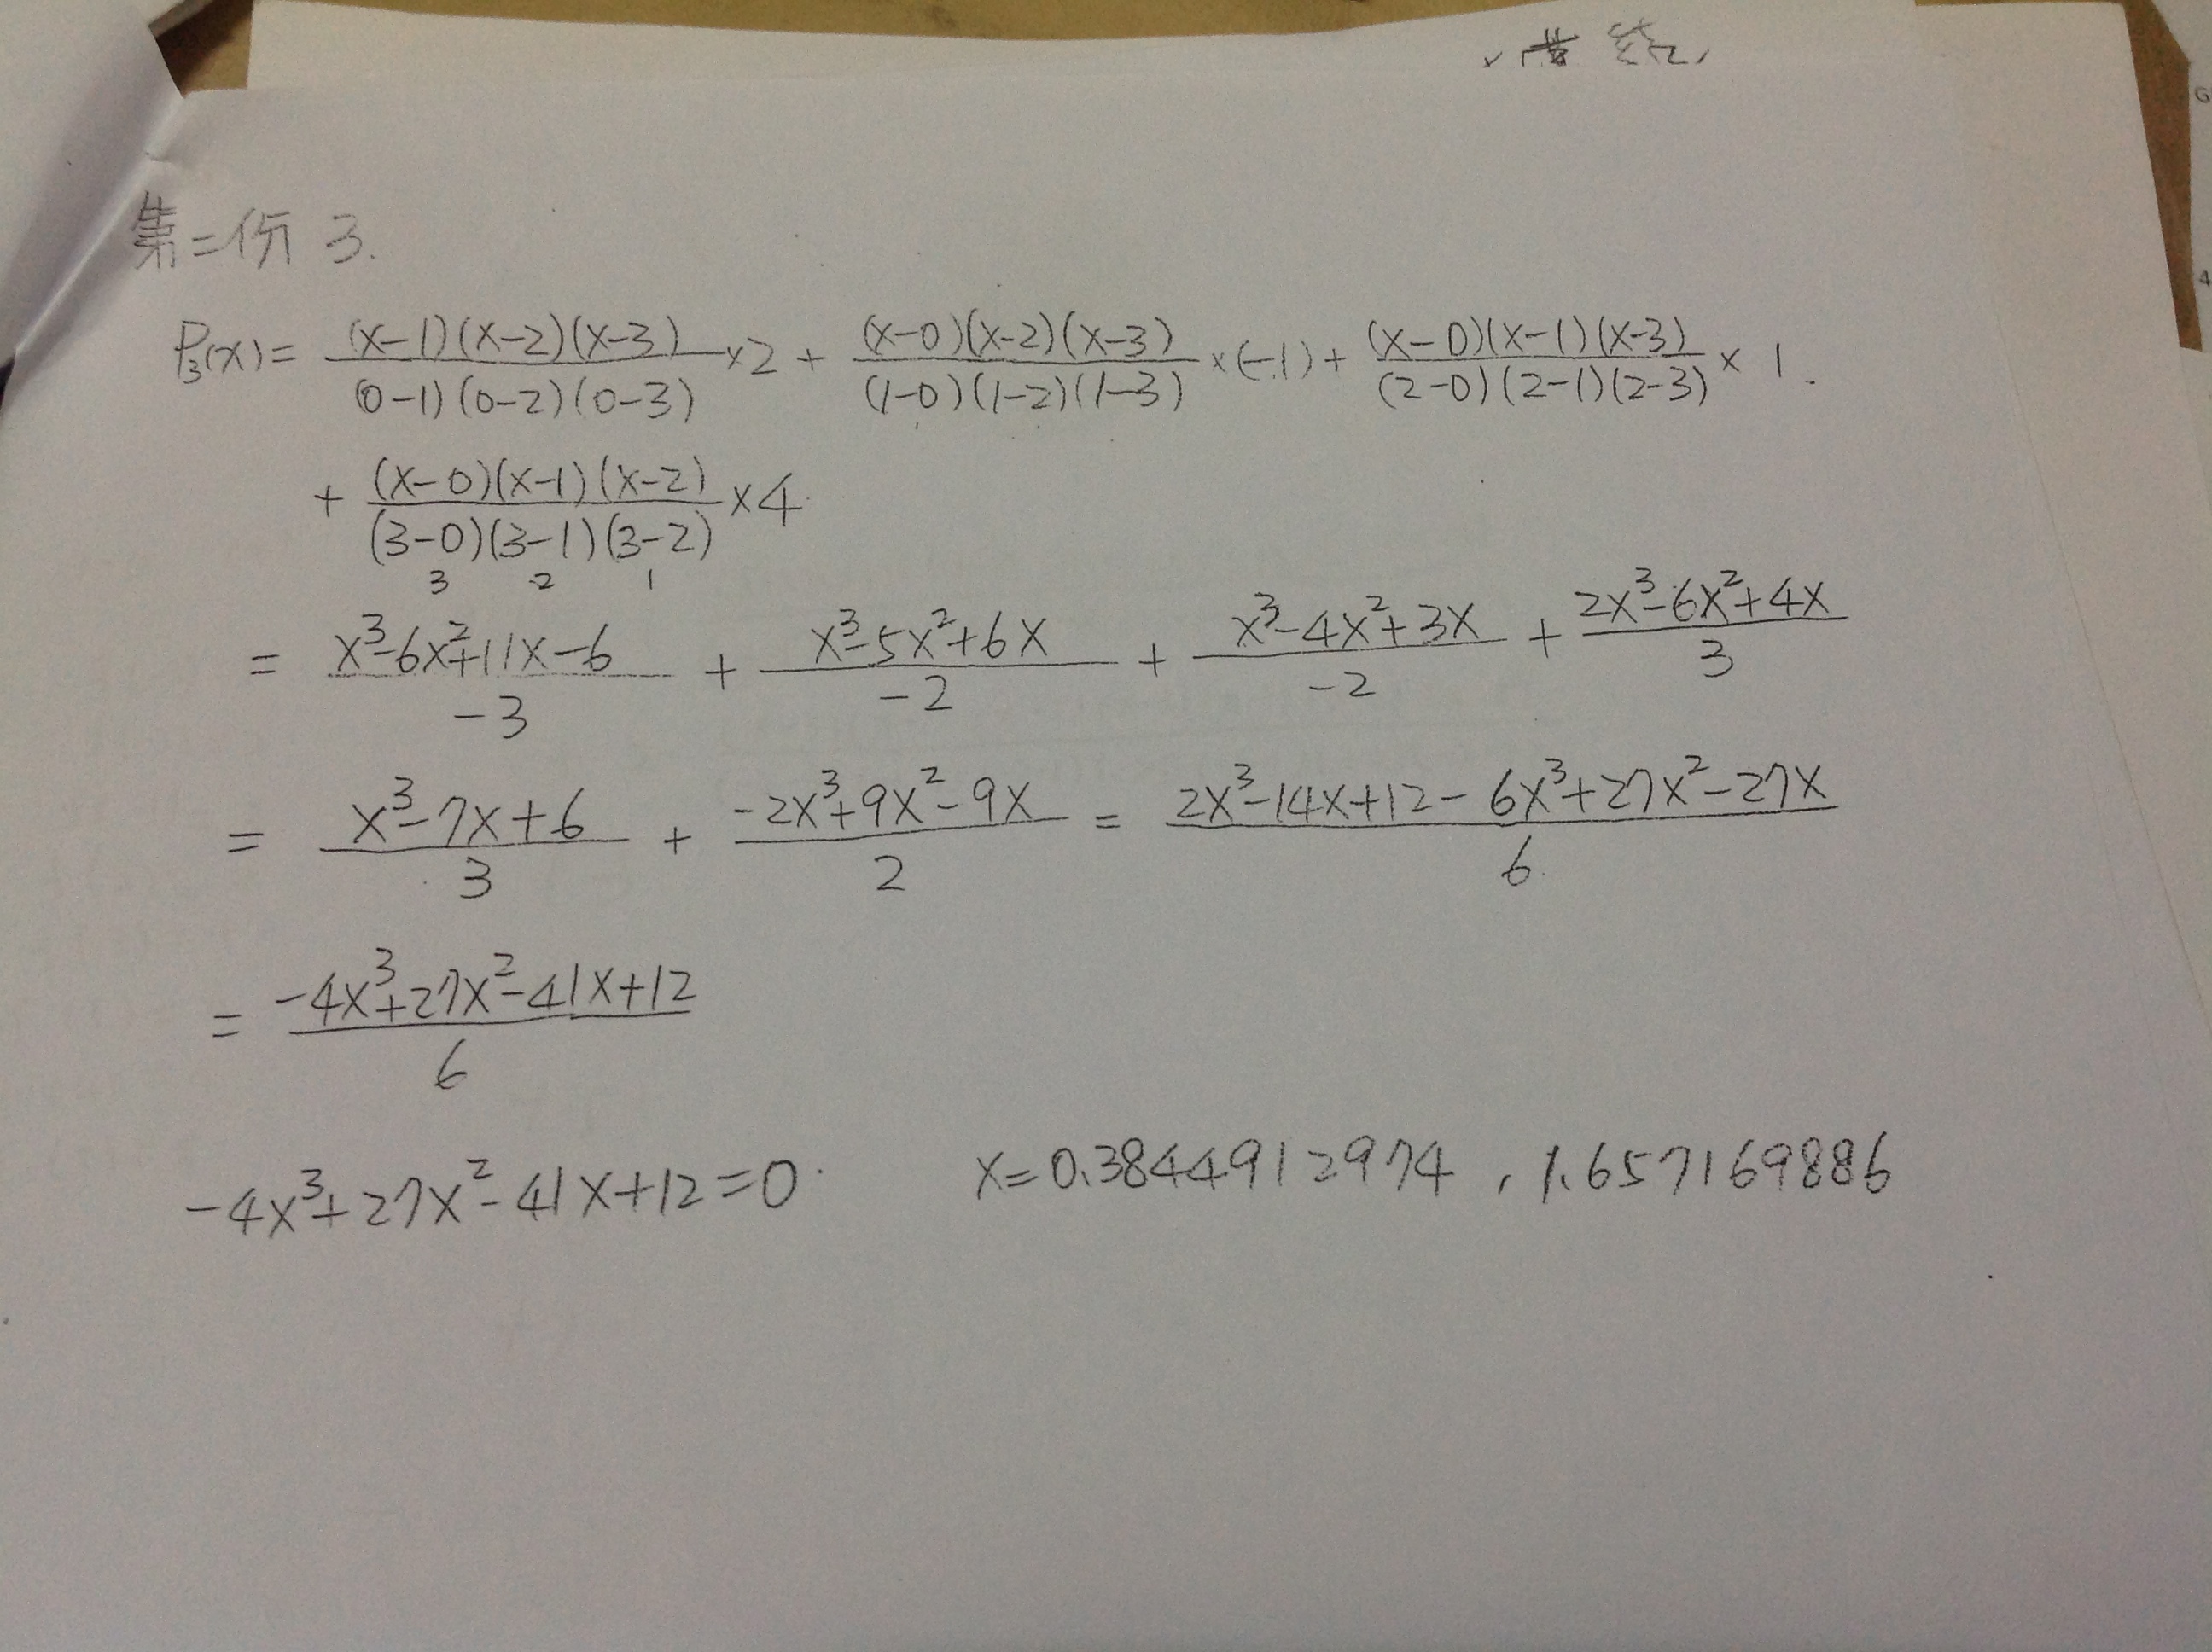 第二份 3.
P₃(x) = (x-1)(x-2)(x-3)/(0-1)(0-2)(0-3) ×2 + (x-0)(x-2)(x-3)/(1-0)(1-2)(1-3) ×(-1) + (x-0)(x-1)(x-3)/(2-0)(2-1)(2-3) × 1.
+ (x-0)(x-1)(x-2)/(3-0)(3-1)(3-2) ×4
3 2 1
= x³-6x²+11x-6/-3 + x³-5x²+6x/-2 + x³-4x²+3x/-2 + 2x³-6x²+4x/3
= x³-7x+6/3 + -2x³+9x²-9x/2 = 2x³-14x+12-6x³+27x²-27x/6
= -4x³+27x²-41x+12/6
-4x³+27x²-41x+12=0 x=0.3844912974, 1.657169886